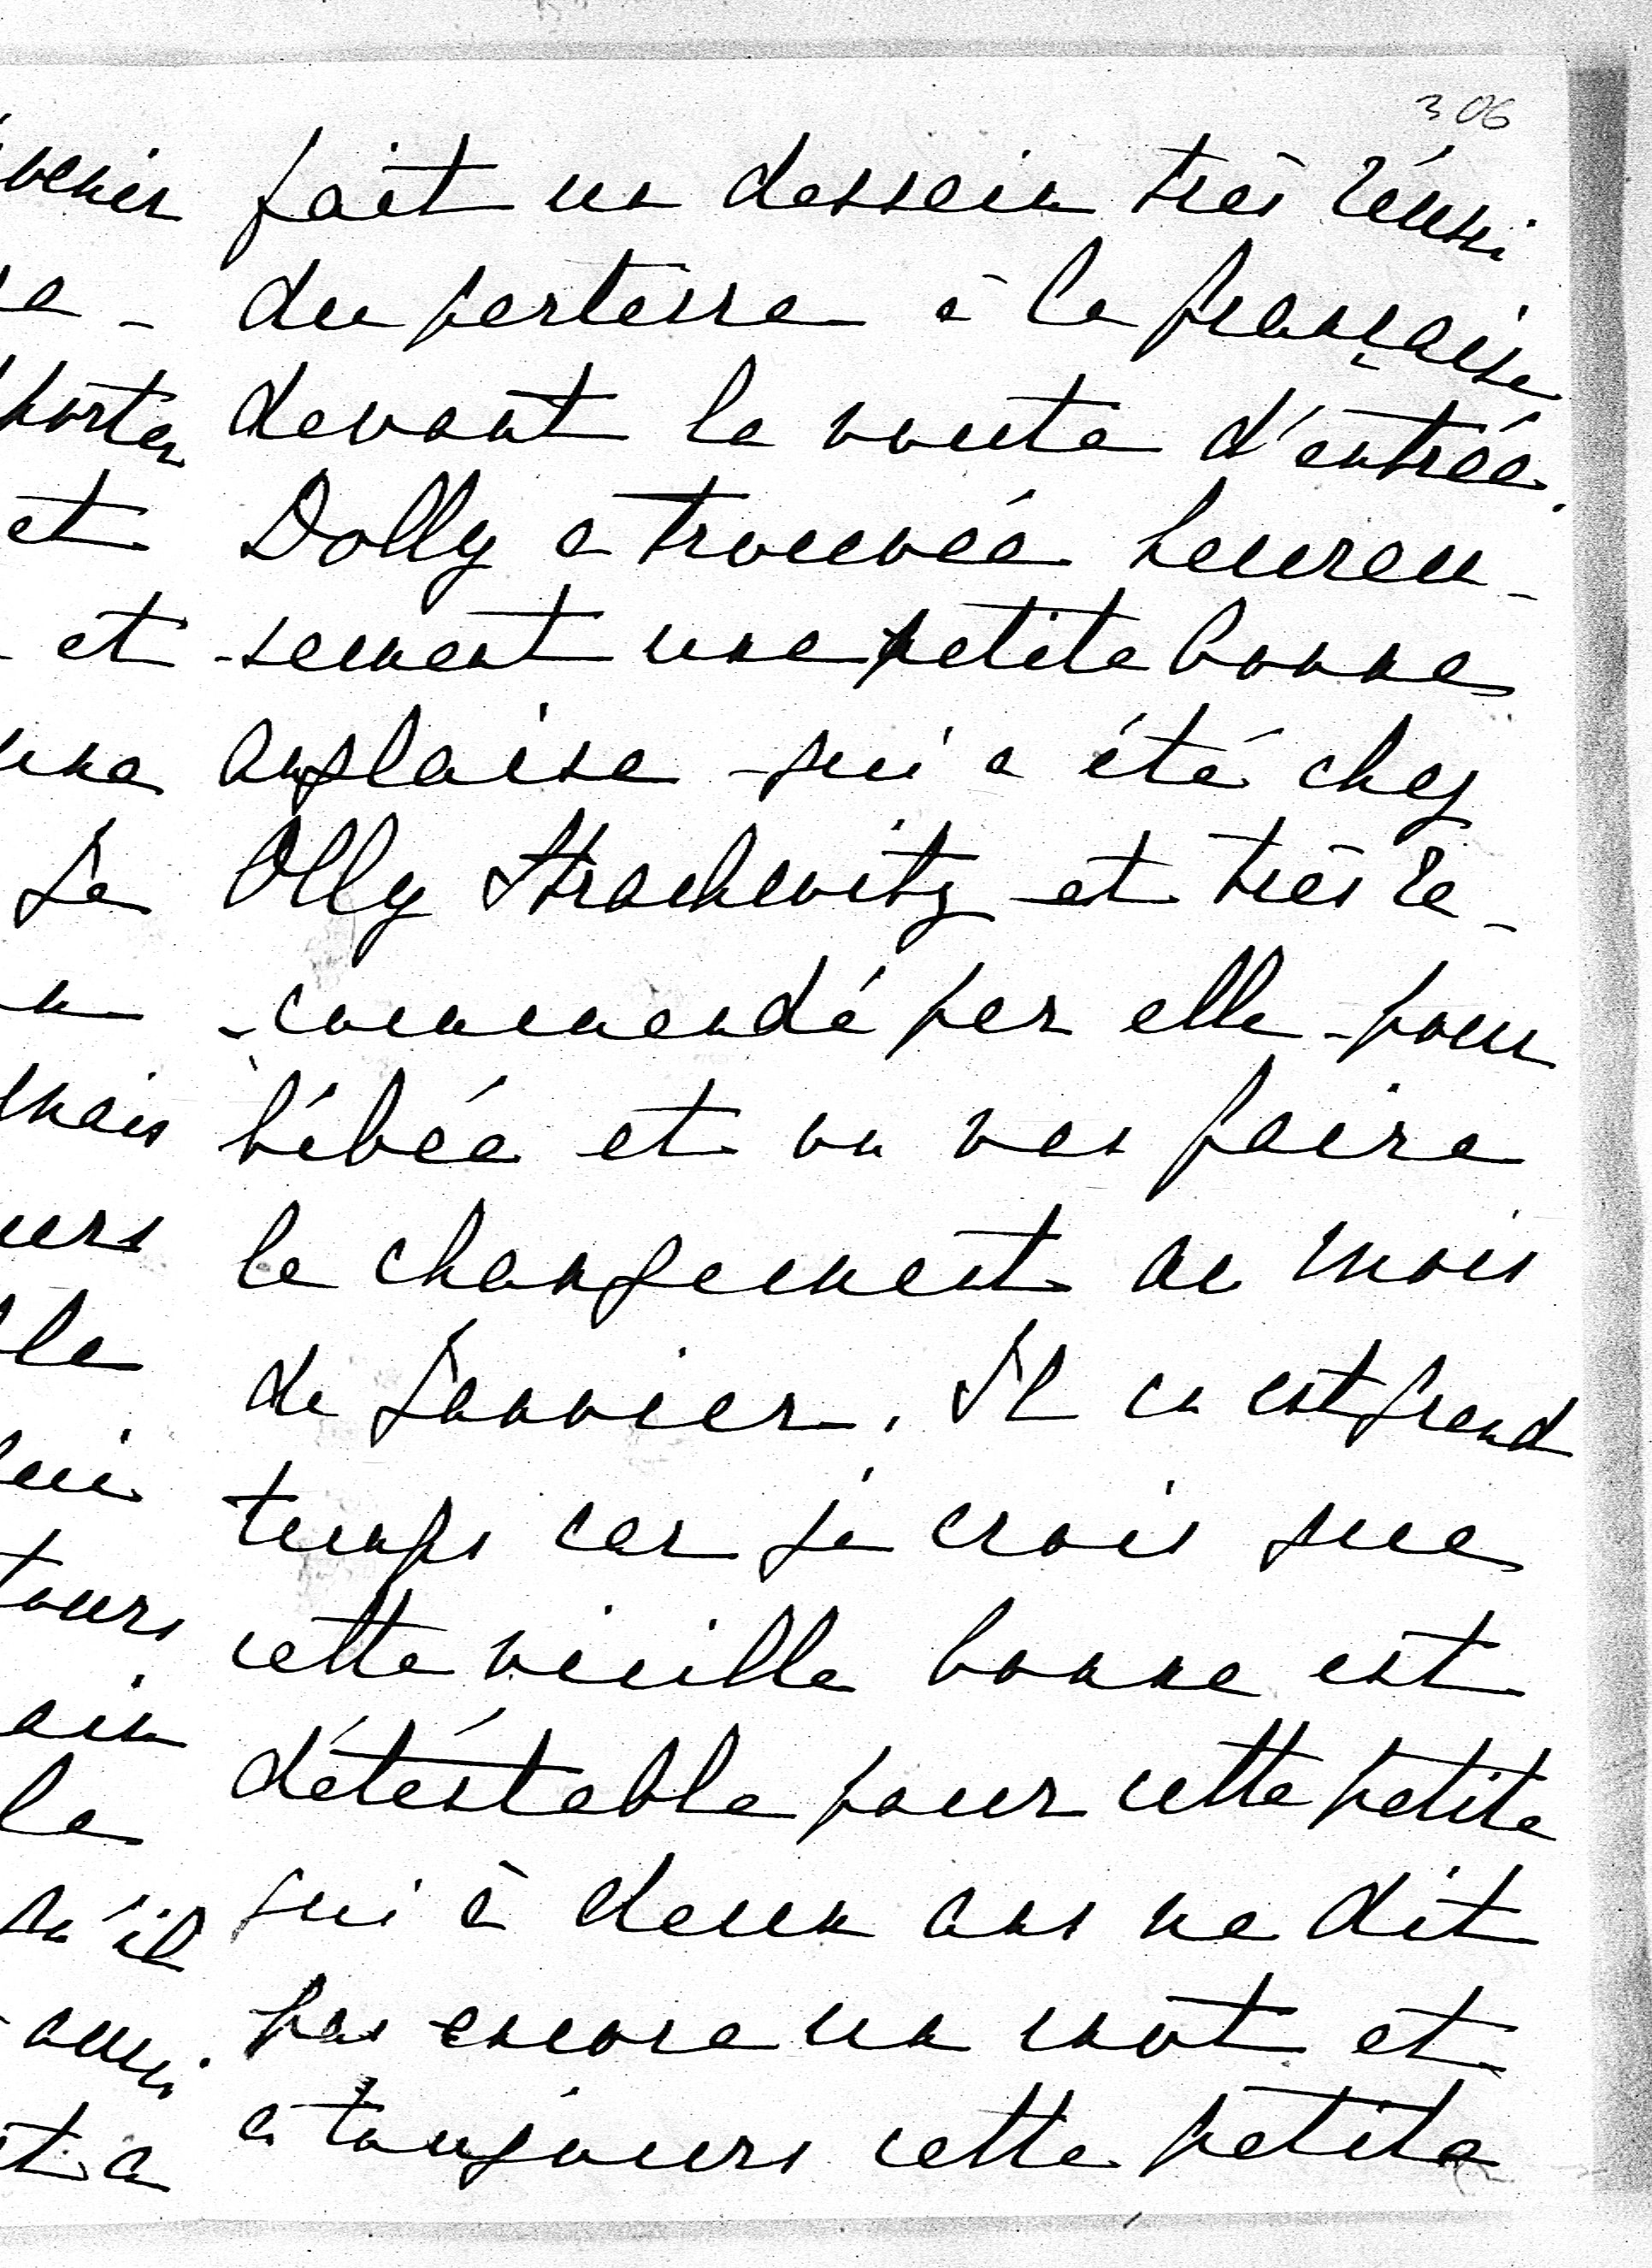 306
fait un dessein très réussi
du parterre à la française
devant la voute d'entrée.
Dolly a trouvée heureu-
-sement une petite bonne
anglaise qui a été chez
Olly Strachwitz et très re-
-commendé par elle pour
bébée et on vas faire
le changement au mois
de Janvier. Il en est grand
temps car je crois que
cette vieille bonne est
détéstable pour cette petite
qui à deux ans ne dit
pas encore un mot et
a toujours cette petite
venir
porter
et
et
une
Je
mais
la
qu'il
aussi